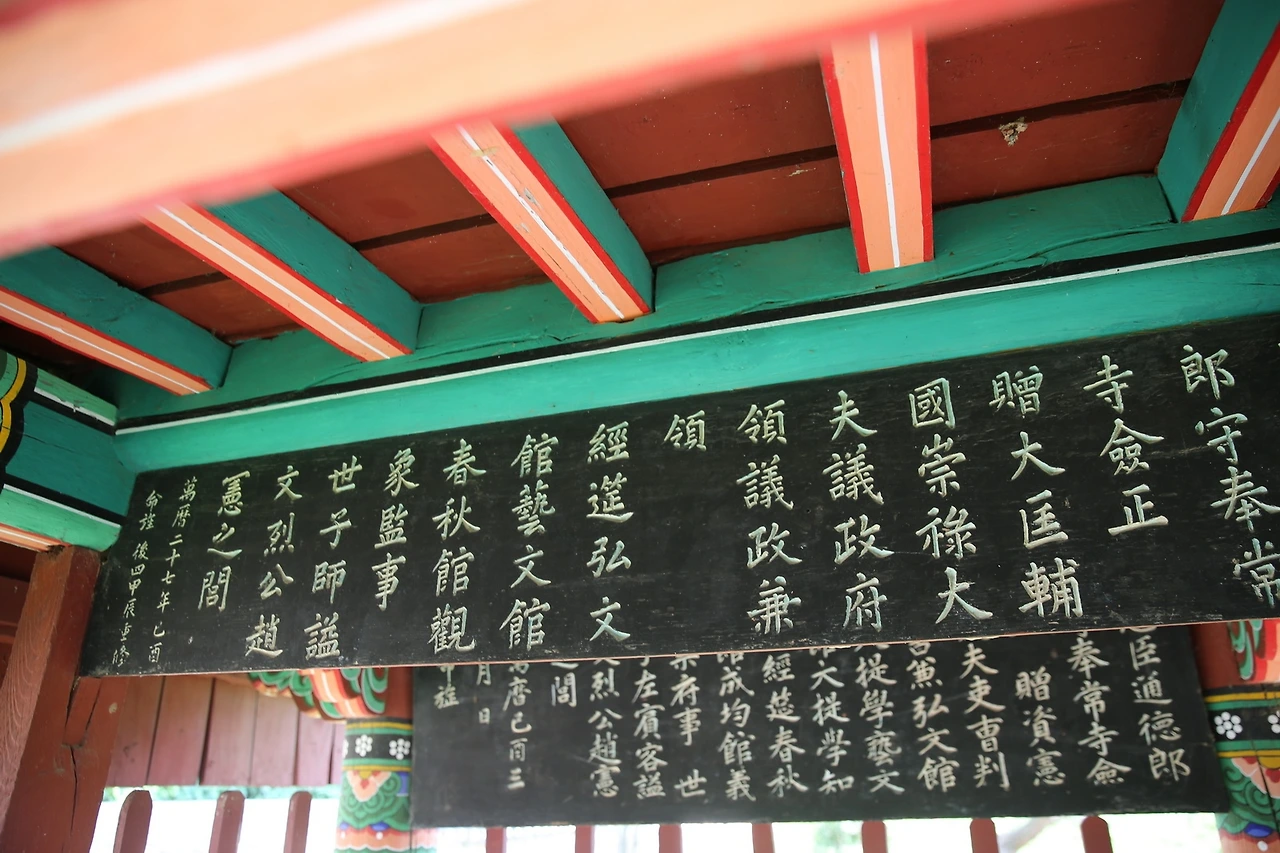 郎守奉常
寺僉正
贈大匡輔
國崇祿大
夫議政府
領議政兼
領
經筵弘文
館藝文館
春秋館觀
象監事
世子師謚
文烈公趙
憲之閭
萬曆二十七年己酉
命旌 後四甲辰重
臣通德郎
奉常寺僉
贈資憲
夫吏曹判
兼弘文館
提學藝文
大提學知
經筵春秋
成均館義
禁府事 世
子左賓客謚
烈公趙憲
之閭
萬曆己酉三
月 日
命旌